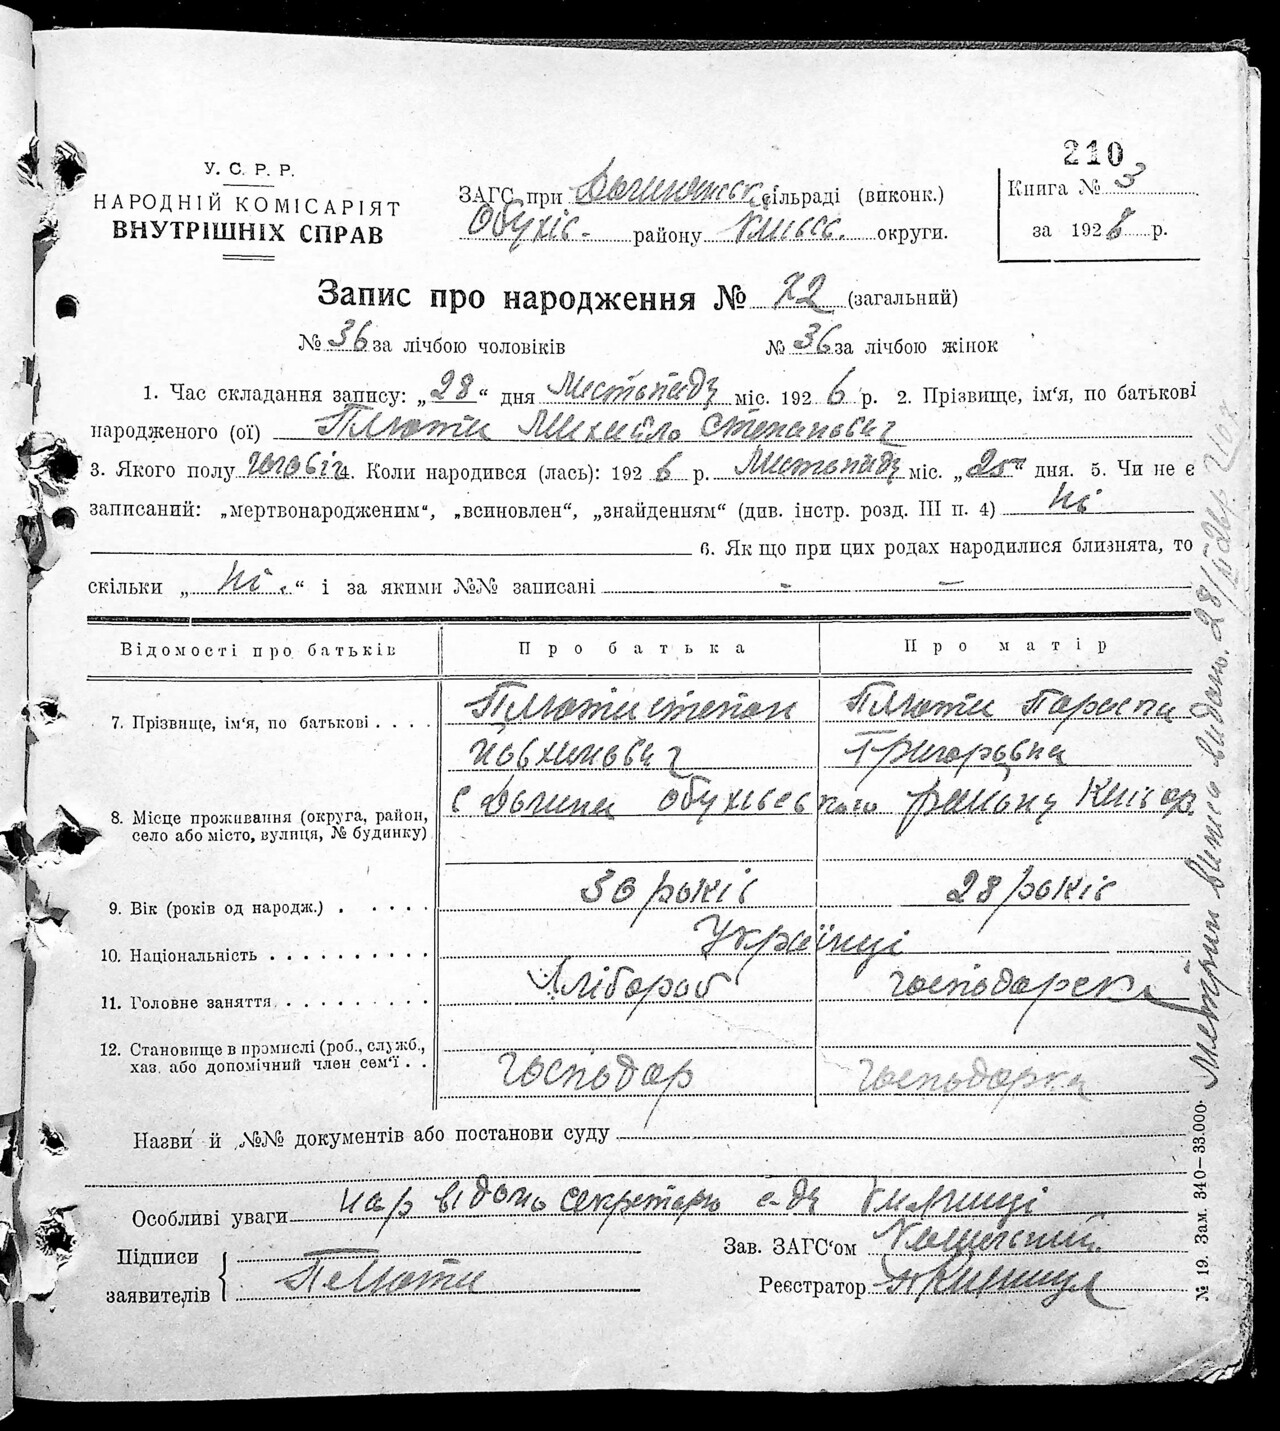 210
У. С. Р. Р.
НАРОДНІЙ КОМІСАРІЯТ
ВНУТРІШНІХ СПРАВ
ЗАГС при сільраді (виконк.)
Обухів. району Київсь. округи.
Книга № 3
за 1926 р.
Запис про народження № 72 (загальний)
№ 36 за лічбою чоловіків № 36 за лічбою жінок
1. Час складання запису: „28“ дня Листопаду міс. 1926 р. 2. Прізвище, ім'я, по батькові
народженого (ої) Плюта Михайло Степанович
3. Якого полу чоловіч 4. Коли народився (лась): 1926 р. Листопаду міс. „25“ дня. 5. Чи не є
записаний: „мертвонародженим“, „всиновлен“, „знайденням“ (див. інстр. розд. III п. 4) Ні
6. Якщо при цих родах народилися близнята, то
скільки „Ні.“ і за якими №№ записані - —
Відомості про батьків Про батька Про матір
7. Прізвище, ім'я, по батькові . . . . Плюта Степан Плюта Параска
Йовхимович Григоровна
8. Місце проживання (округа, район, село або місто, вулиця, № будинку) с Долина Обухівського району Київ окр
9. Вік (років од народж.) . . . . . 30 років 28 років
10. Національність . . . . . . . . . . Українці
11. Головне заняття . . . . . . . . . Хлібороб господарска
12. Становище в промислі (роб., служб., хаз. або допомічний член сем'ї . . господар господарка
Назви й №№ документів або постанови суду
Особливі уваги відомо секретарю
Підписи
заявителів
Плюта
Зав. ЗАГС'ом
Реєстратор
№ 19. Зам. 340—33.000.
Метрич випись видань. 28/